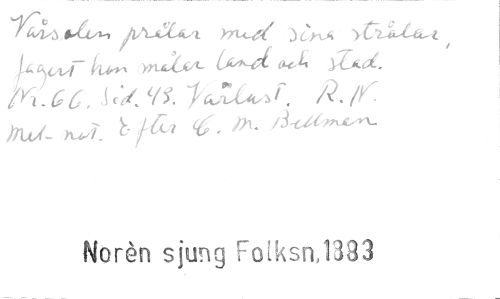 Vårsolen prålar med sina strålar,
fagert hon målar land och stad.
Nr. 66. Sid. 49. Vårlust. R. N.
Mel- not. Efter C. M. Bellman
Norèn sjung Folksn, 1883